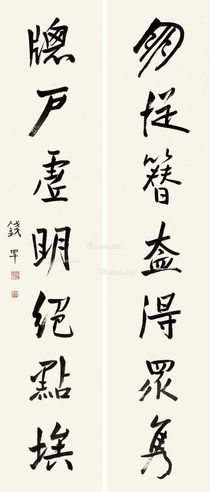 朋從簪盍得眾雋
牕戶虛明絕點埃
錢罕